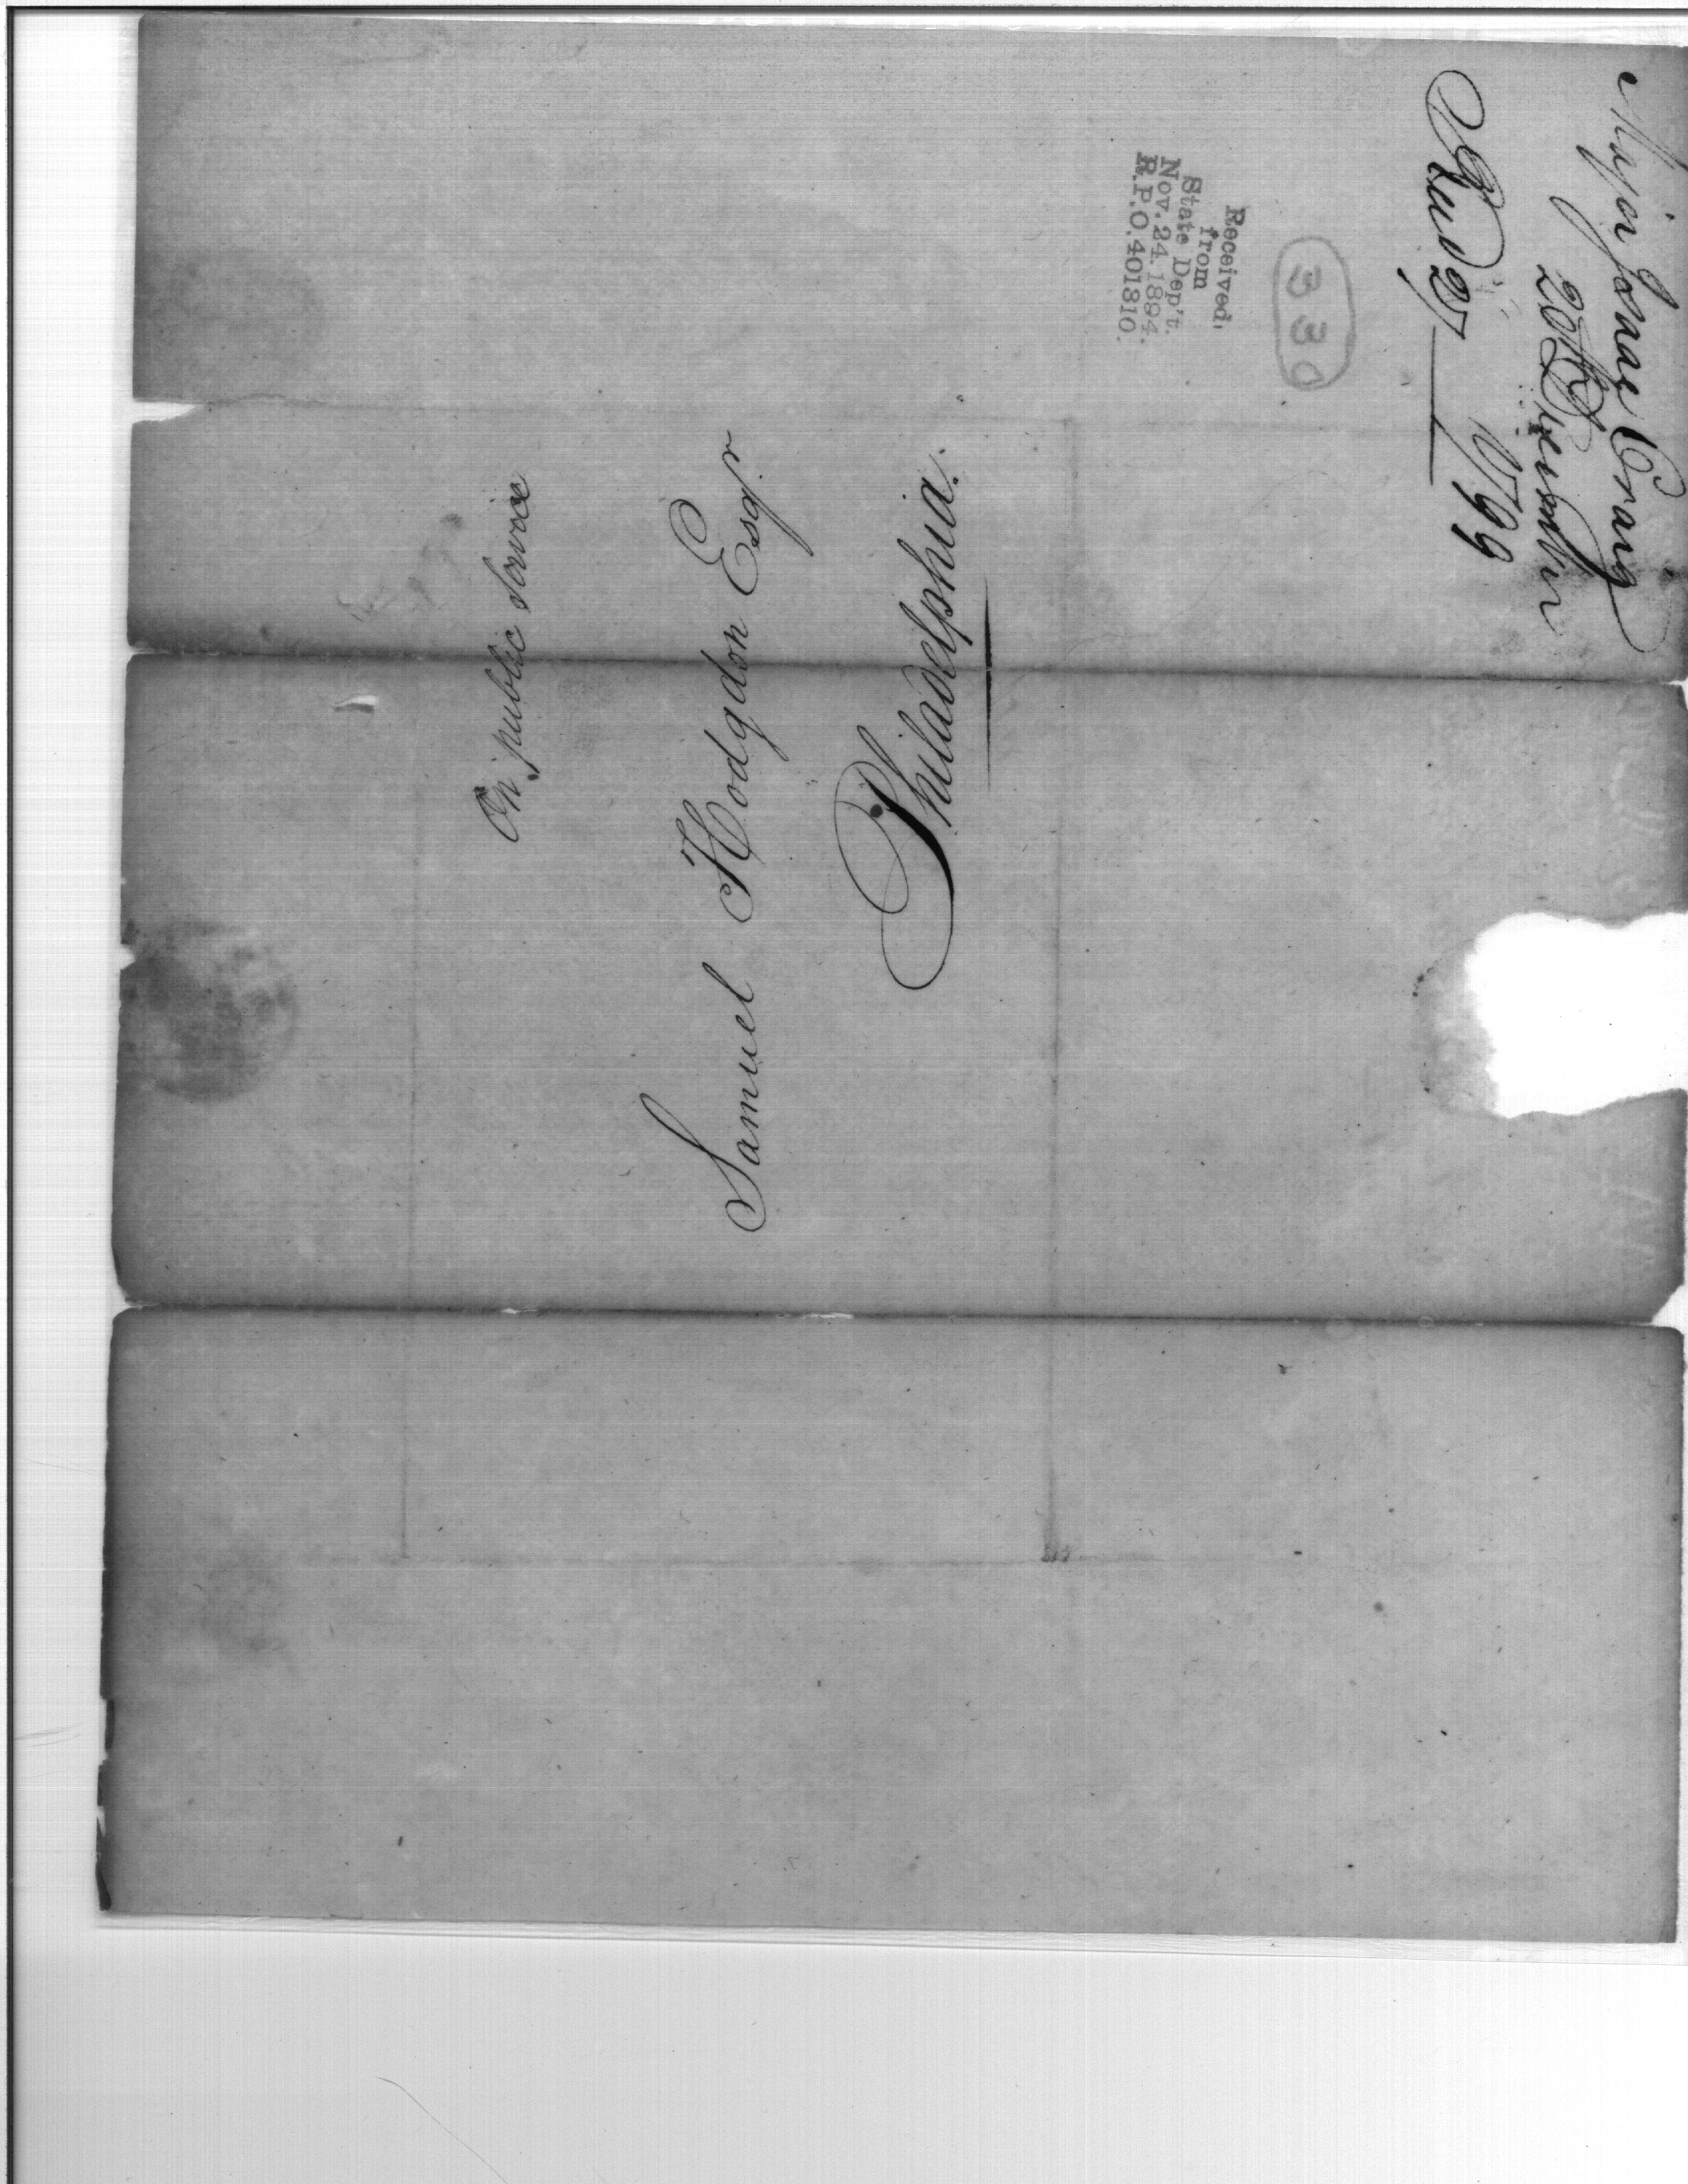 On public Service
Samuel Hodgdon Esqr
Philadelphia.
Major Isaac Craig
20th December
1799
Recd 27
330
Received,
from
State Dep't.
Nov. 24. 1894.
R.P.O. 401310.